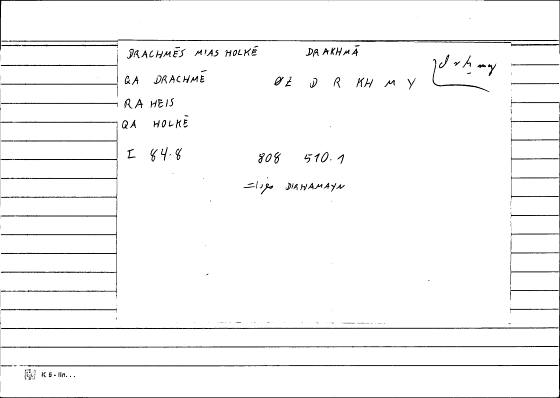 DRACHMĒS MIAS HOLKĒ DRAKHMĀ
QA DRACHMĒ ØE D R KH M Y
RA HEIS
QA HOLKĒ
I 84.8 808 510.1
DIRHAMAYN
K 5 - IIn...